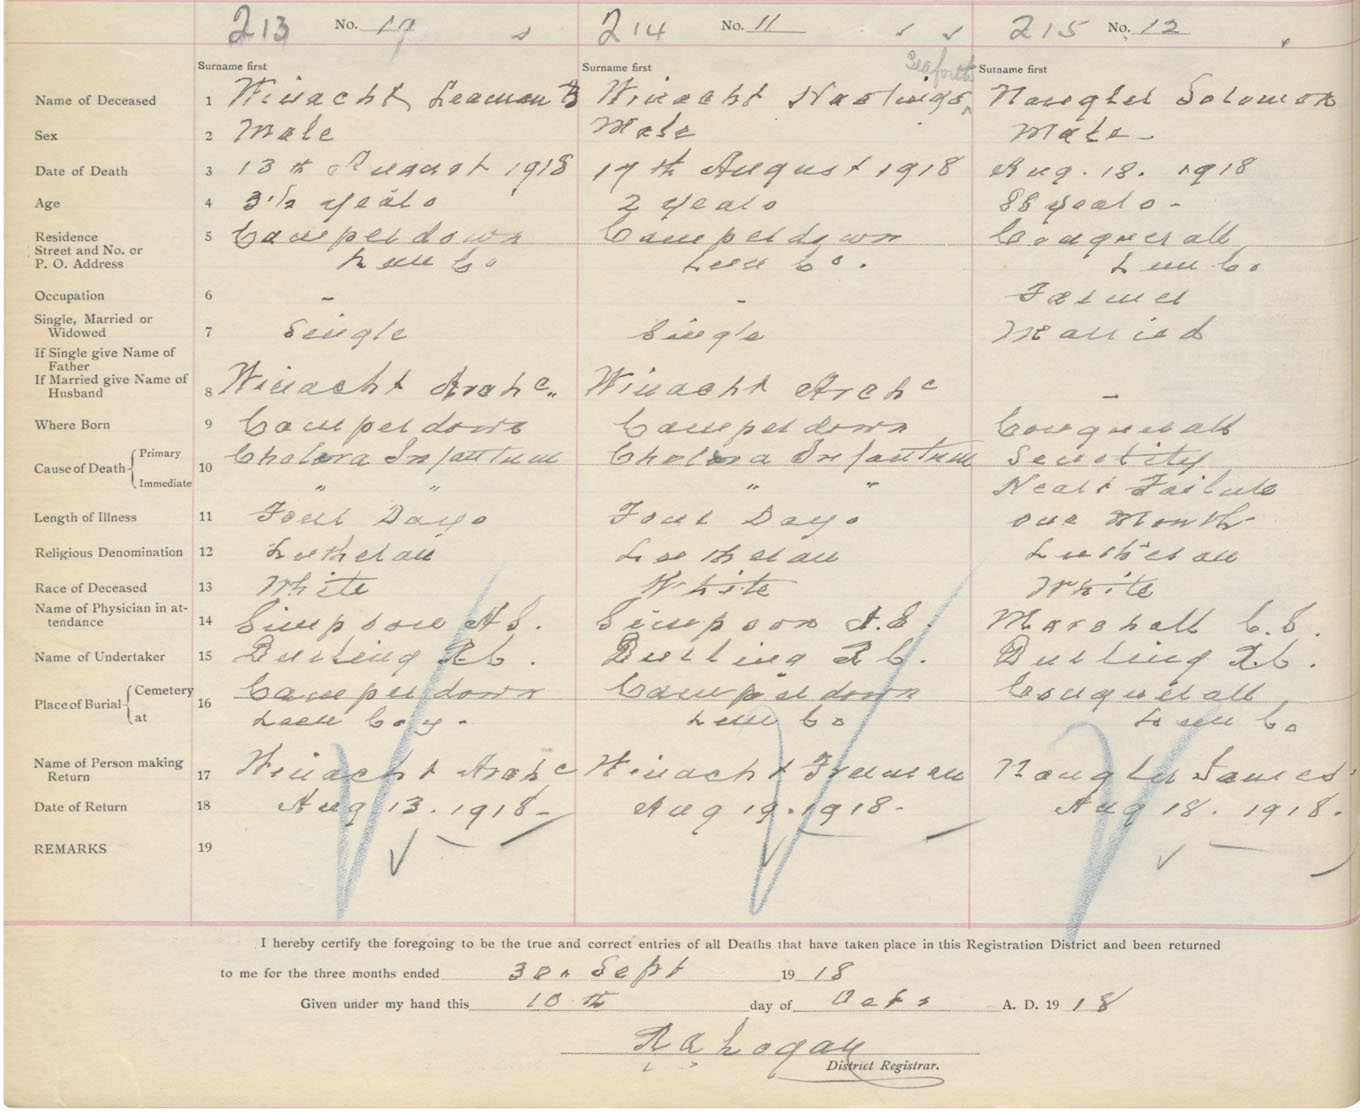 213 No. 214 No. 11 215 No. 12
Surname first Surname first Seaforth Surname first
Name of Deceased 1 Winacht, Seaman B Winacht Hastings Naugler Solomon
Sex 2 Male Male Male -
Date of Death 3 13th August 1918 17th August 1918 Aug. 18. 1918
Age 4 3 1/2 years 2 years 88 years -
Residence 5 Camperdown Camperdown Conquerall
Street and No. or
P. O. Address Lun Co Lun Co. Lun Co
Occupation 6 - - Farmer
Single, Married or
Widowed 7 Single Single Married
If Single give Name of
Father
If Married give Name of
Husband 8 Winacht Arch c„ Winacht Arch c -
Where Born 9 Camperdown Camperdown Conquerall
Cause of Death { Primary 10 Cholera Infantum Cholera Infantum Senility
Immediate " " " " Heart Failure
Length of Illness 11 Four Days Four Days one Month
Religious Denomination 12 Lutheran Lutheran Lutheran
Race of Deceased 13 White White White
Name of Physician in at-
tendance 14 Simpson A S. Simpson A. S. Marshall C. S.
Name of Undertaker 15 Durling R C. Durling R C. Durling R C.
Place of Burial { Cemetery 16 Camperdown Camperdown Conquerall
at Lun Coy. Lun Co Lun Co
Name of Person making
Return 17 Winacht Arch c Winacht Freeman Naugler James
Date of Return 18 Aug 13. 1918 - Aug 19. 1918 - Aug 18. 1918.
REMARKS 19
I hereby certify the foregoing to be the true and correct entries of all Deaths that have taken place in this Registration District and been returned
to me for the three months ended 30. Sept 19 18
Given under my hand this 10 th day of Octr A. D. 19 18
R A Logan
District Registrar.